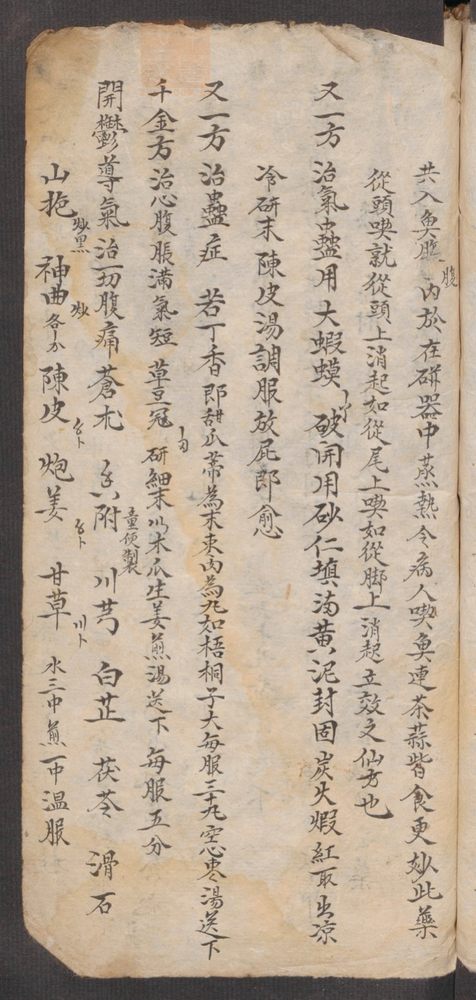 共入魚腹內於在硑器中蒸熱令病人喫魚連茶蒜皆食更妙此藥
從頭喫就從頭上消起如從尾上喫如從脚上消起立效之仙方也
又一方 治氣蠱用大蝦蟆一个 破開用砂仁填滿黃泥封固炭火煆紅取出凉
冷研末陳皮湯調服放屁即愈
又一方 治蠱症 若丁香 即甜瓜蒂為末枣肉為丸如梧桐子大每服三十丸空心枣湯送下
千金方治心腹脹滿氣短 草豆冠 研細末以木瓜生姜煎湯送下 每服五分
開鬱導氣治一切腹痛 蒼朮 香附 童便製 川芎 白芷 茯苓 滑石
山梔 炒黑 神曲 炒 各分 陳皮 炮姜 甘草 水三中煎一中溫服